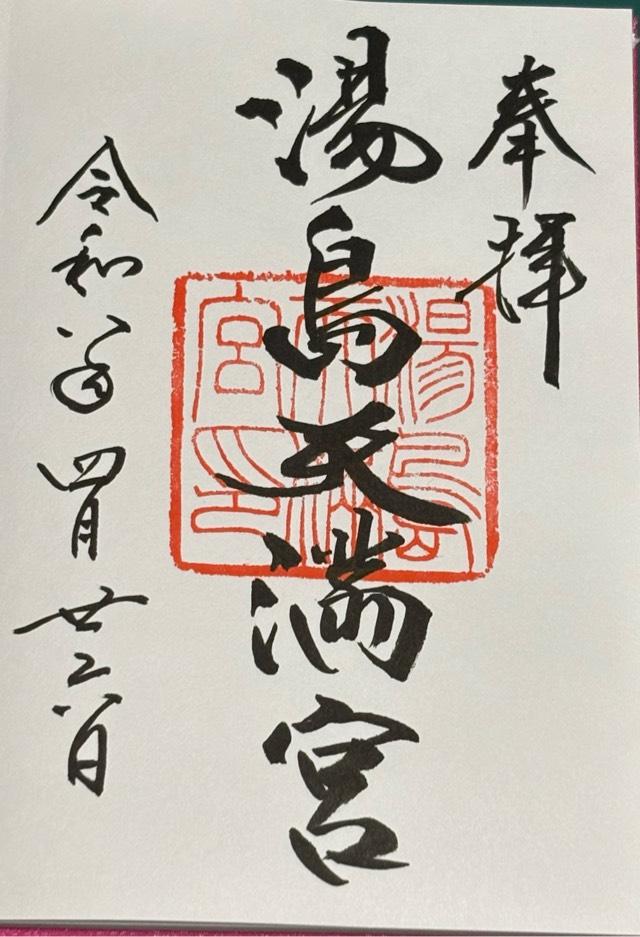 奉拝
湯島天満宮
令和八年四月廿六日
湯島
天満
宮印